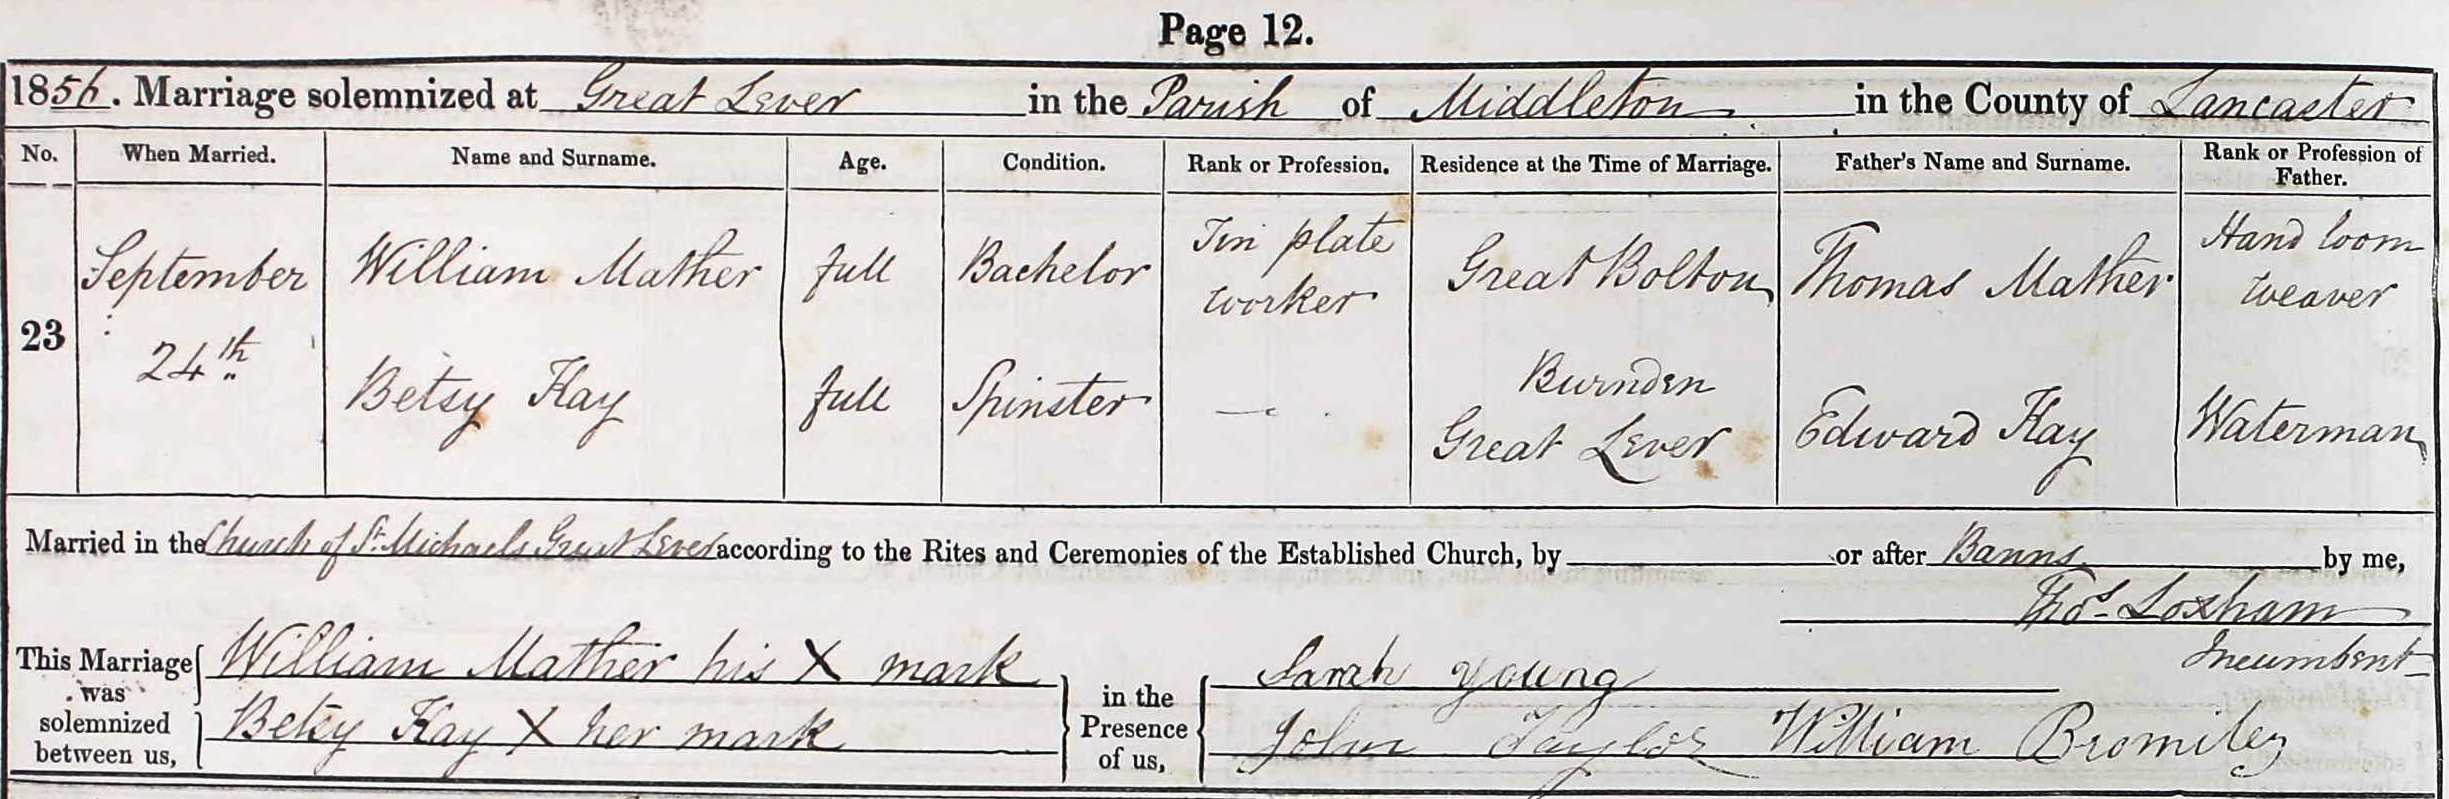 Page 12.
1856. Marriage solemnized at Great Lever in the Parish of Middleton in the County of Lancaster
No. When Married. Name and Surname. Age. Condition. Rank or Profession. Residence at the Time of Marriage. Father's Name and Surname. Rank or Profession of Father.
23 September 24th William Mather full Bachelor Tin plate worker Great Bolton Thomas Mather Hand loom weaver
Betsy Kay full Spinster — Burnden Great Lever Edward Kay Waterman
Married in the Church of St. Michaels Great Lever according to the Rites and Ceremonies of the Established Church, by or after Banns by me,
Thos. Loxham
Incumbent
This Marriage was solemnized between us, William Mather his X mark
Betsy Kay X her mark
in the Presence of us, Sarah Young
John Taylor William Bromiley